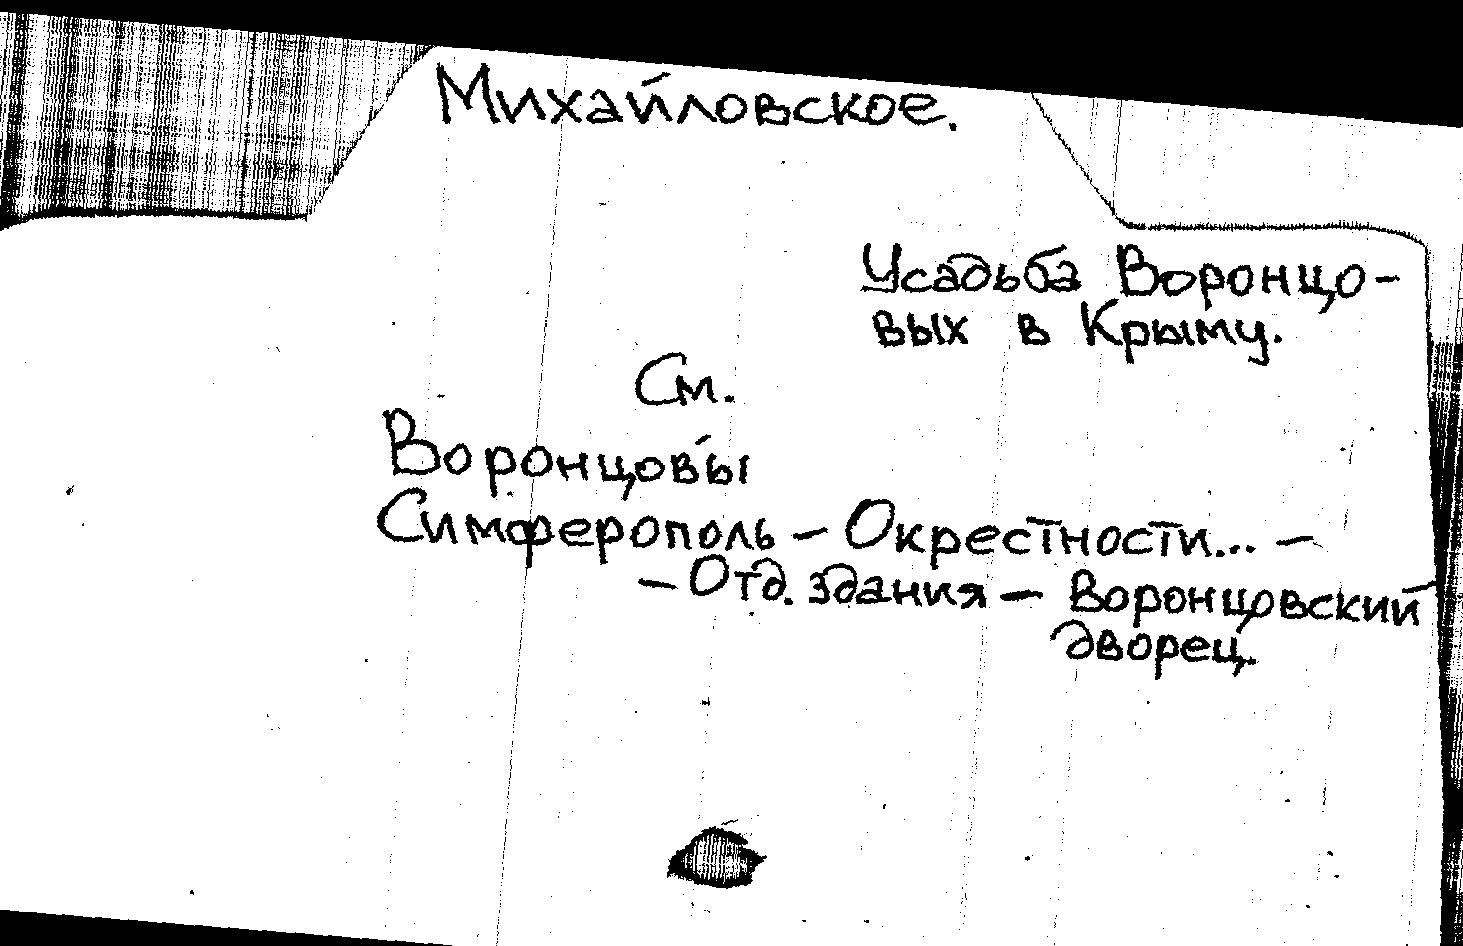 Михайловское.
Усадьба Воронцо-
вых в Крыму.
См.
Воронцовы
Симферополь – Окрестности... –
– Отд. здания – Воронцовский
дворец.